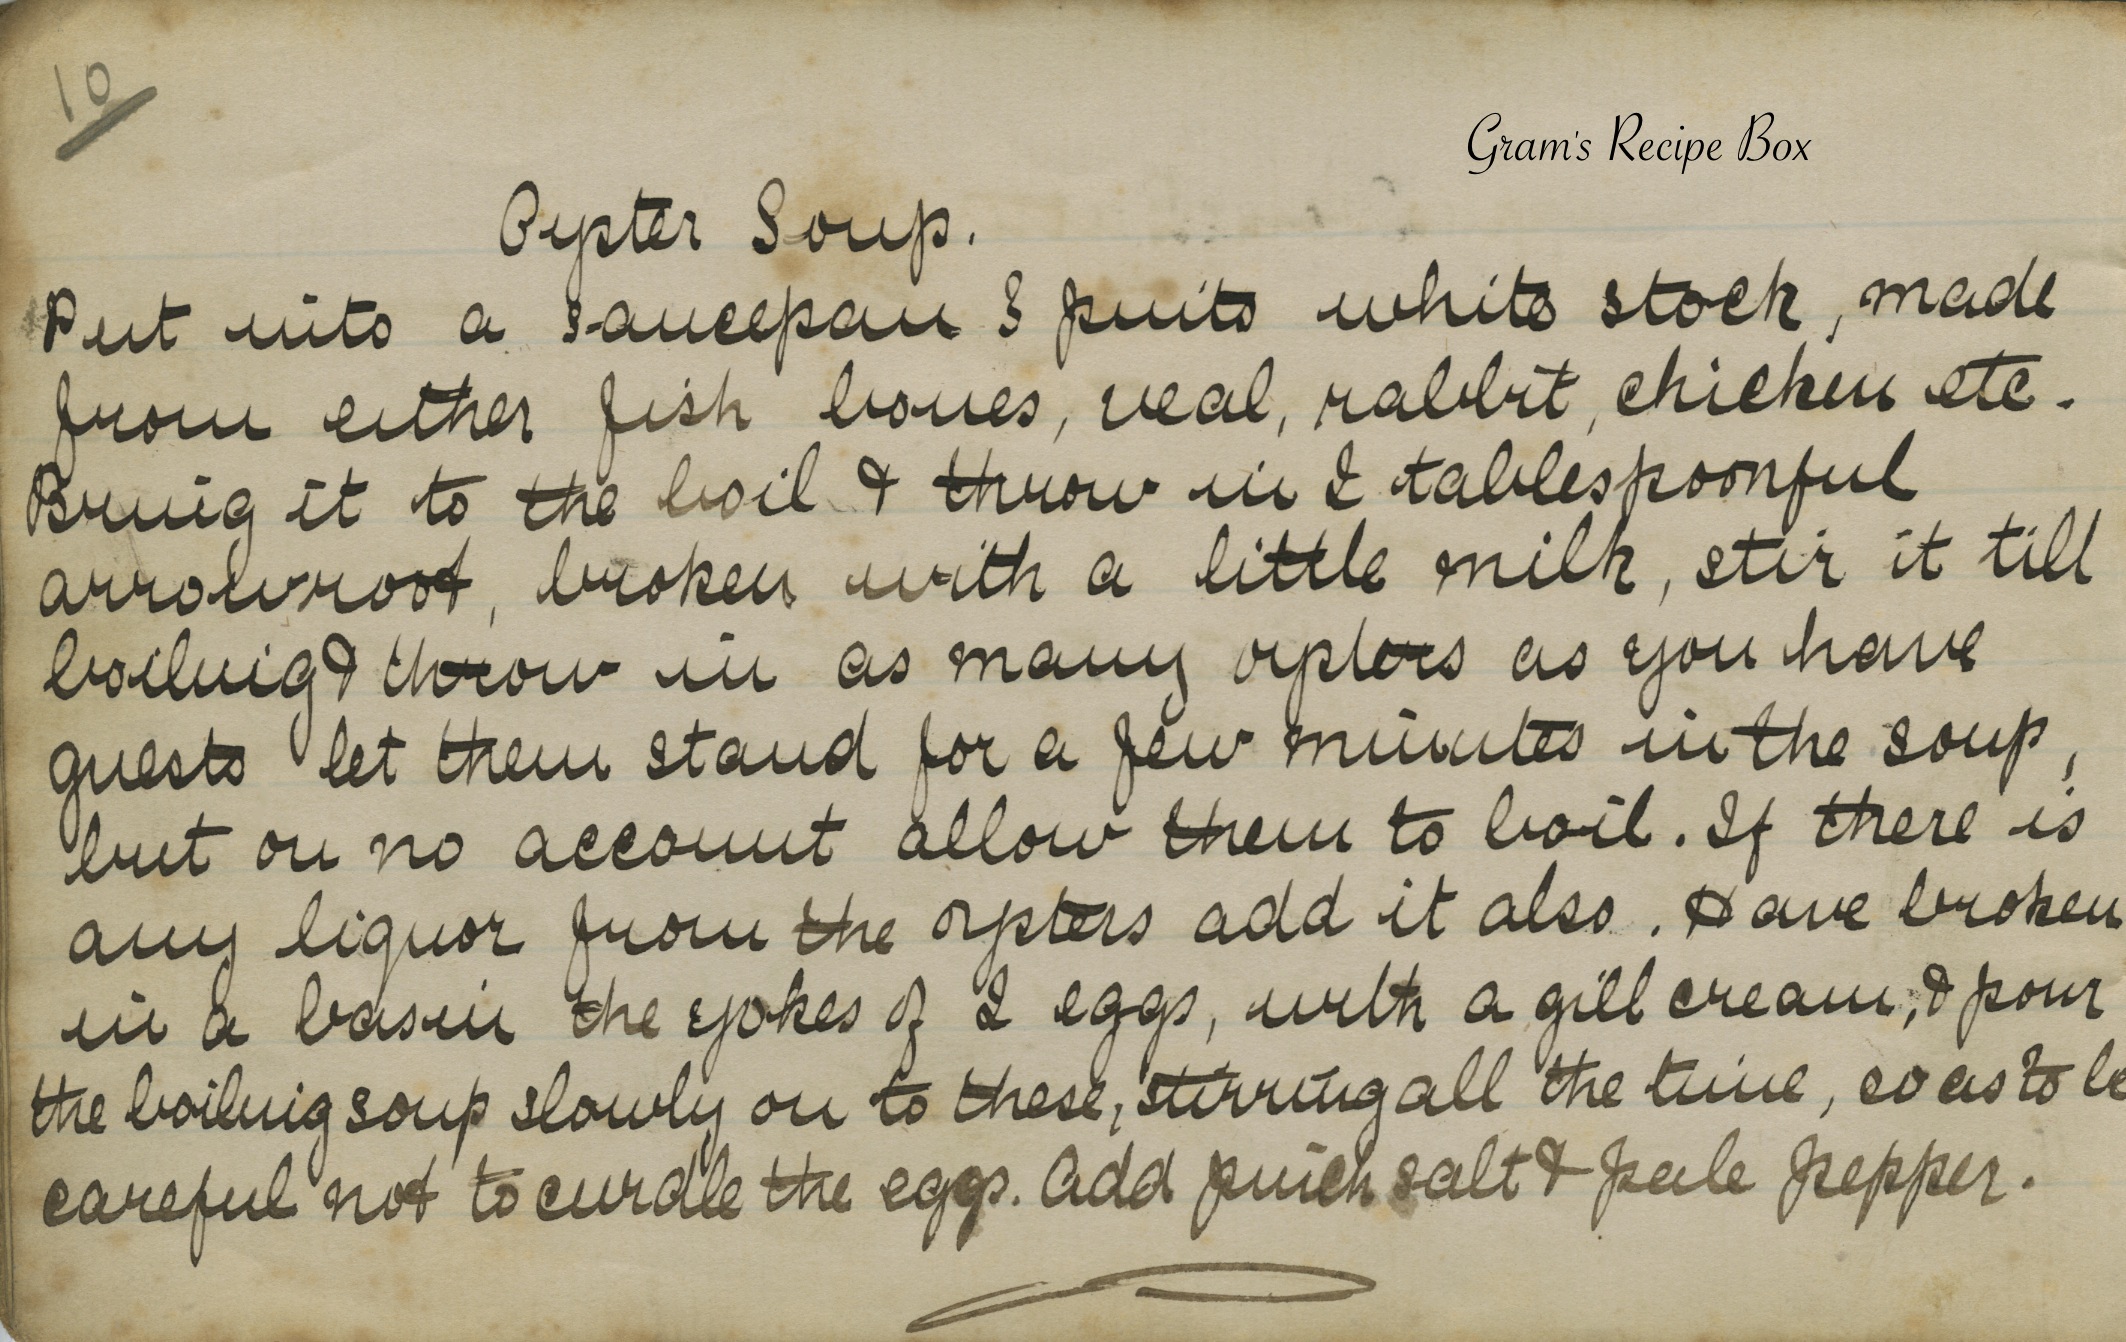 10
Gram's Recipe Box
Oyster Soup.
Put into a saucepan 3 pints white stock, made
from either fish bones, veal, rabbit, chicken etc.
Bring it to the boil & throw in 2 tablespoonful
arrowroot, broken with a little milk, stir it till
boiling & throw in as many oysters as you have
guests let them stand for a few minutes in the soup,
but on no account allow them to boil. If there is
any liquor from the oysters add it also. Have broken
in a basin the yokes of 2 eggs, with a gill cream, & pour
the boiling soup slowly on to these, stirring all the time, so as to be
careful not to curdle the eggs. Add pinch salt & pale pepper.